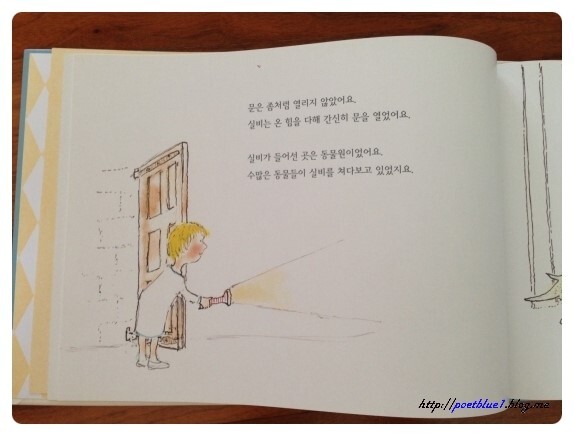 문은 좀처럼 열리지 않았어요.
실비는 온 힘을 다해 간신히 문을 열었어요.
실비가 들어선 곳은 동물원이었어요.
수많은 동물들이 실비를 쳐다보고 있었지요.
http://poetblue1.blog.me